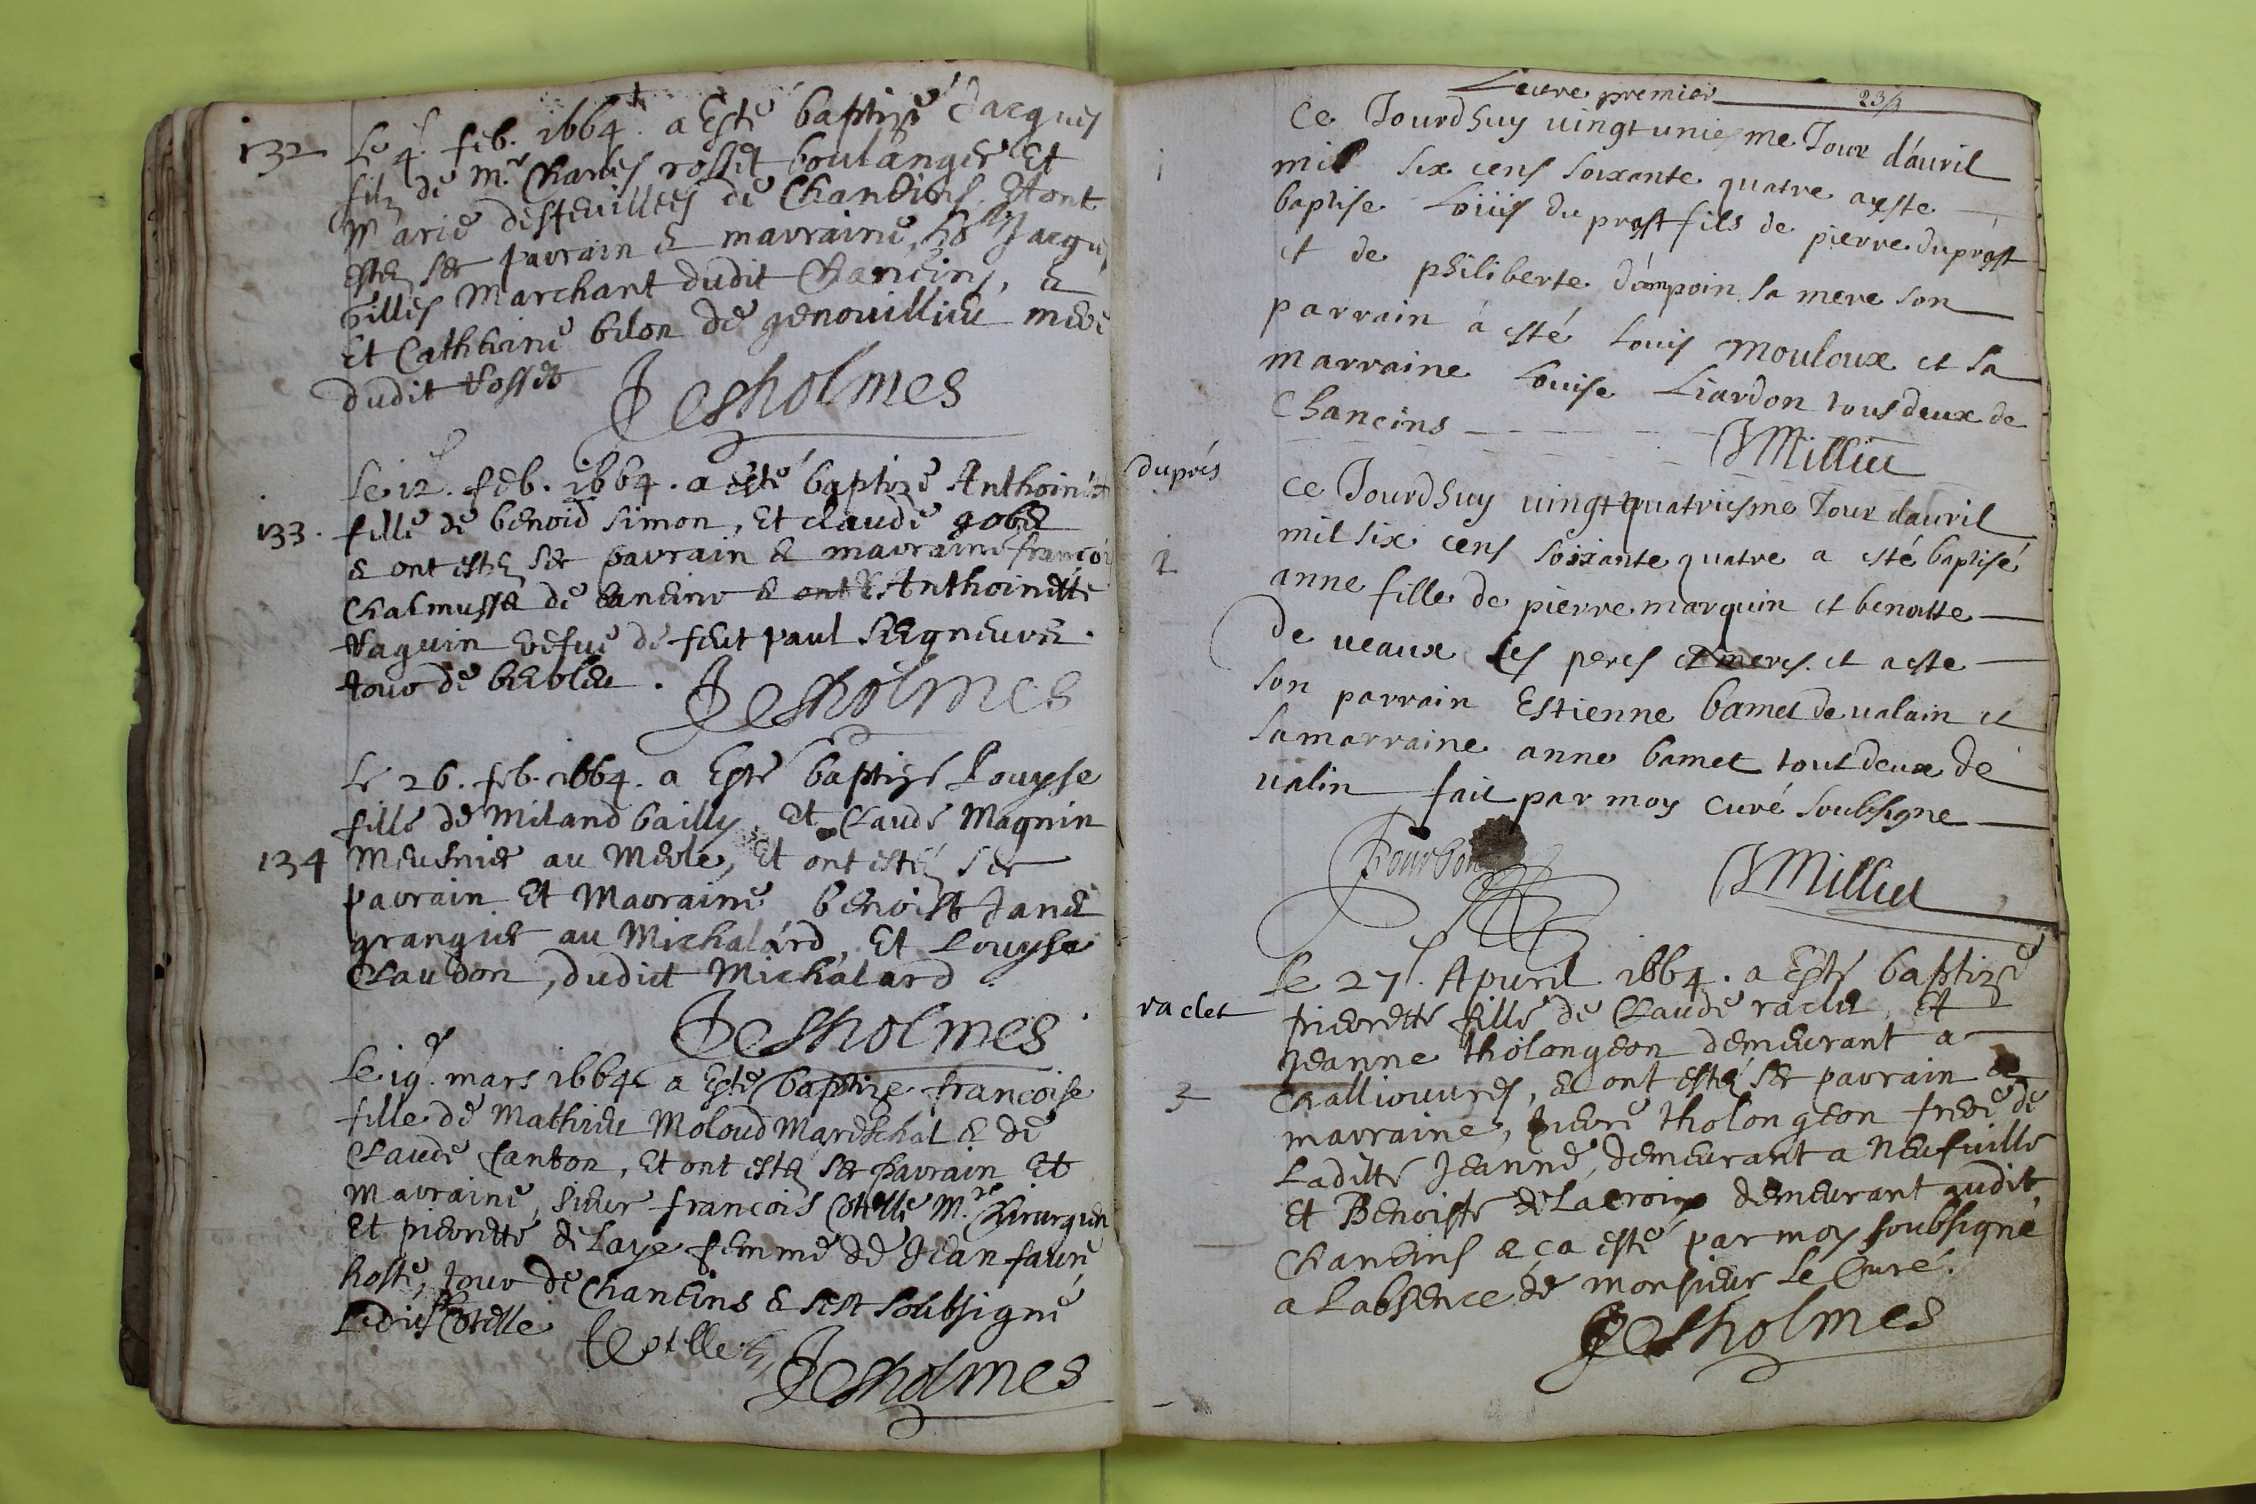 132
Le 4. feb. 1664. a Esté baptizé Jacques
filz de Mr. Charles rosset boulanger Et
Marie desfeuilleés de Chaneins. Et ont
estez ses parrain & marraine, Jacques
Gilles Marchant dudit Chaneins, &
Et Catherine bilon de genouillieu mere
dudit Rosset
Desholmes
133.
Le 12. feb. 1664. a esté baptizé Anthoinette
fille de benoid simon, Et claude gobet
& ont estez ses parrain & marraine françois
Chalmusse de & ont & Anthoinette
Vaguin vefue de feut paul
tous de
Desholmes
Le 26. feb. 1664. a Esté baptizé Louyse
fille de Miland bailly, Et Claude Magnin
134
Meusnier au Merle, Et ont estéz ses
parrain Et Marraine benoist Janet
grangier au Michalard, Et Louyse
Claudon, dudict Michalard
Desholmes.
Le 19. mars 1664 a Esté baptize francoise
fille de Mathieu Moloud Mareschal & de
Claude Canton, Et ont estez ses parrain Et
Marraine, sieur francois Cotelle Mre. Chirurgien
Et pierrette de Laye femme de Jean faure
hoste, tous de Chaneins & s'est soubsigné
Ledit Cotelle
Cotelle Desholmes
Leure premier 23/1
Ce Jourdhuy uingtuniesme Jour d'auril
1
mil six cens soixante quatre aeste
baptise Loüis duprast fils de pierre duprast
et de philiberte dampoin sa mere son
parrain à esté Louis mouloux et sa
marraine Louise Liardon tous deux de
Chaneins
JMilliet
duprés
Ce Jourdhuy uingtquatriesme Jour dauril
mil six cens soixante quatre a esté baptisé
2
anne fille de pierre marquin et benoitte
de ueaux ses peres et meres. et a este
son parrain Estienne bamet de ualain et
sa marraine anne bamet tout deux de
ualin fait par moy curé soubsigne
Bourbon JMilliet
Le 27. Apuril 1664. a Esté baptizé
raclet
pierrette fille de Claude raclet, Et
Jeanne tholongeon demeurant a
3
Challiouures, & ont estéz ses parrain &
marraine, pierre tholongeon frere de
Laditte Jeanne, demeurant a Neufuille
Et Benoiste de Lacroix demeurant audit
Chaneins & ça esté par moy soubsigné
a Labsence de monsieur Le Curé.
Desholmes